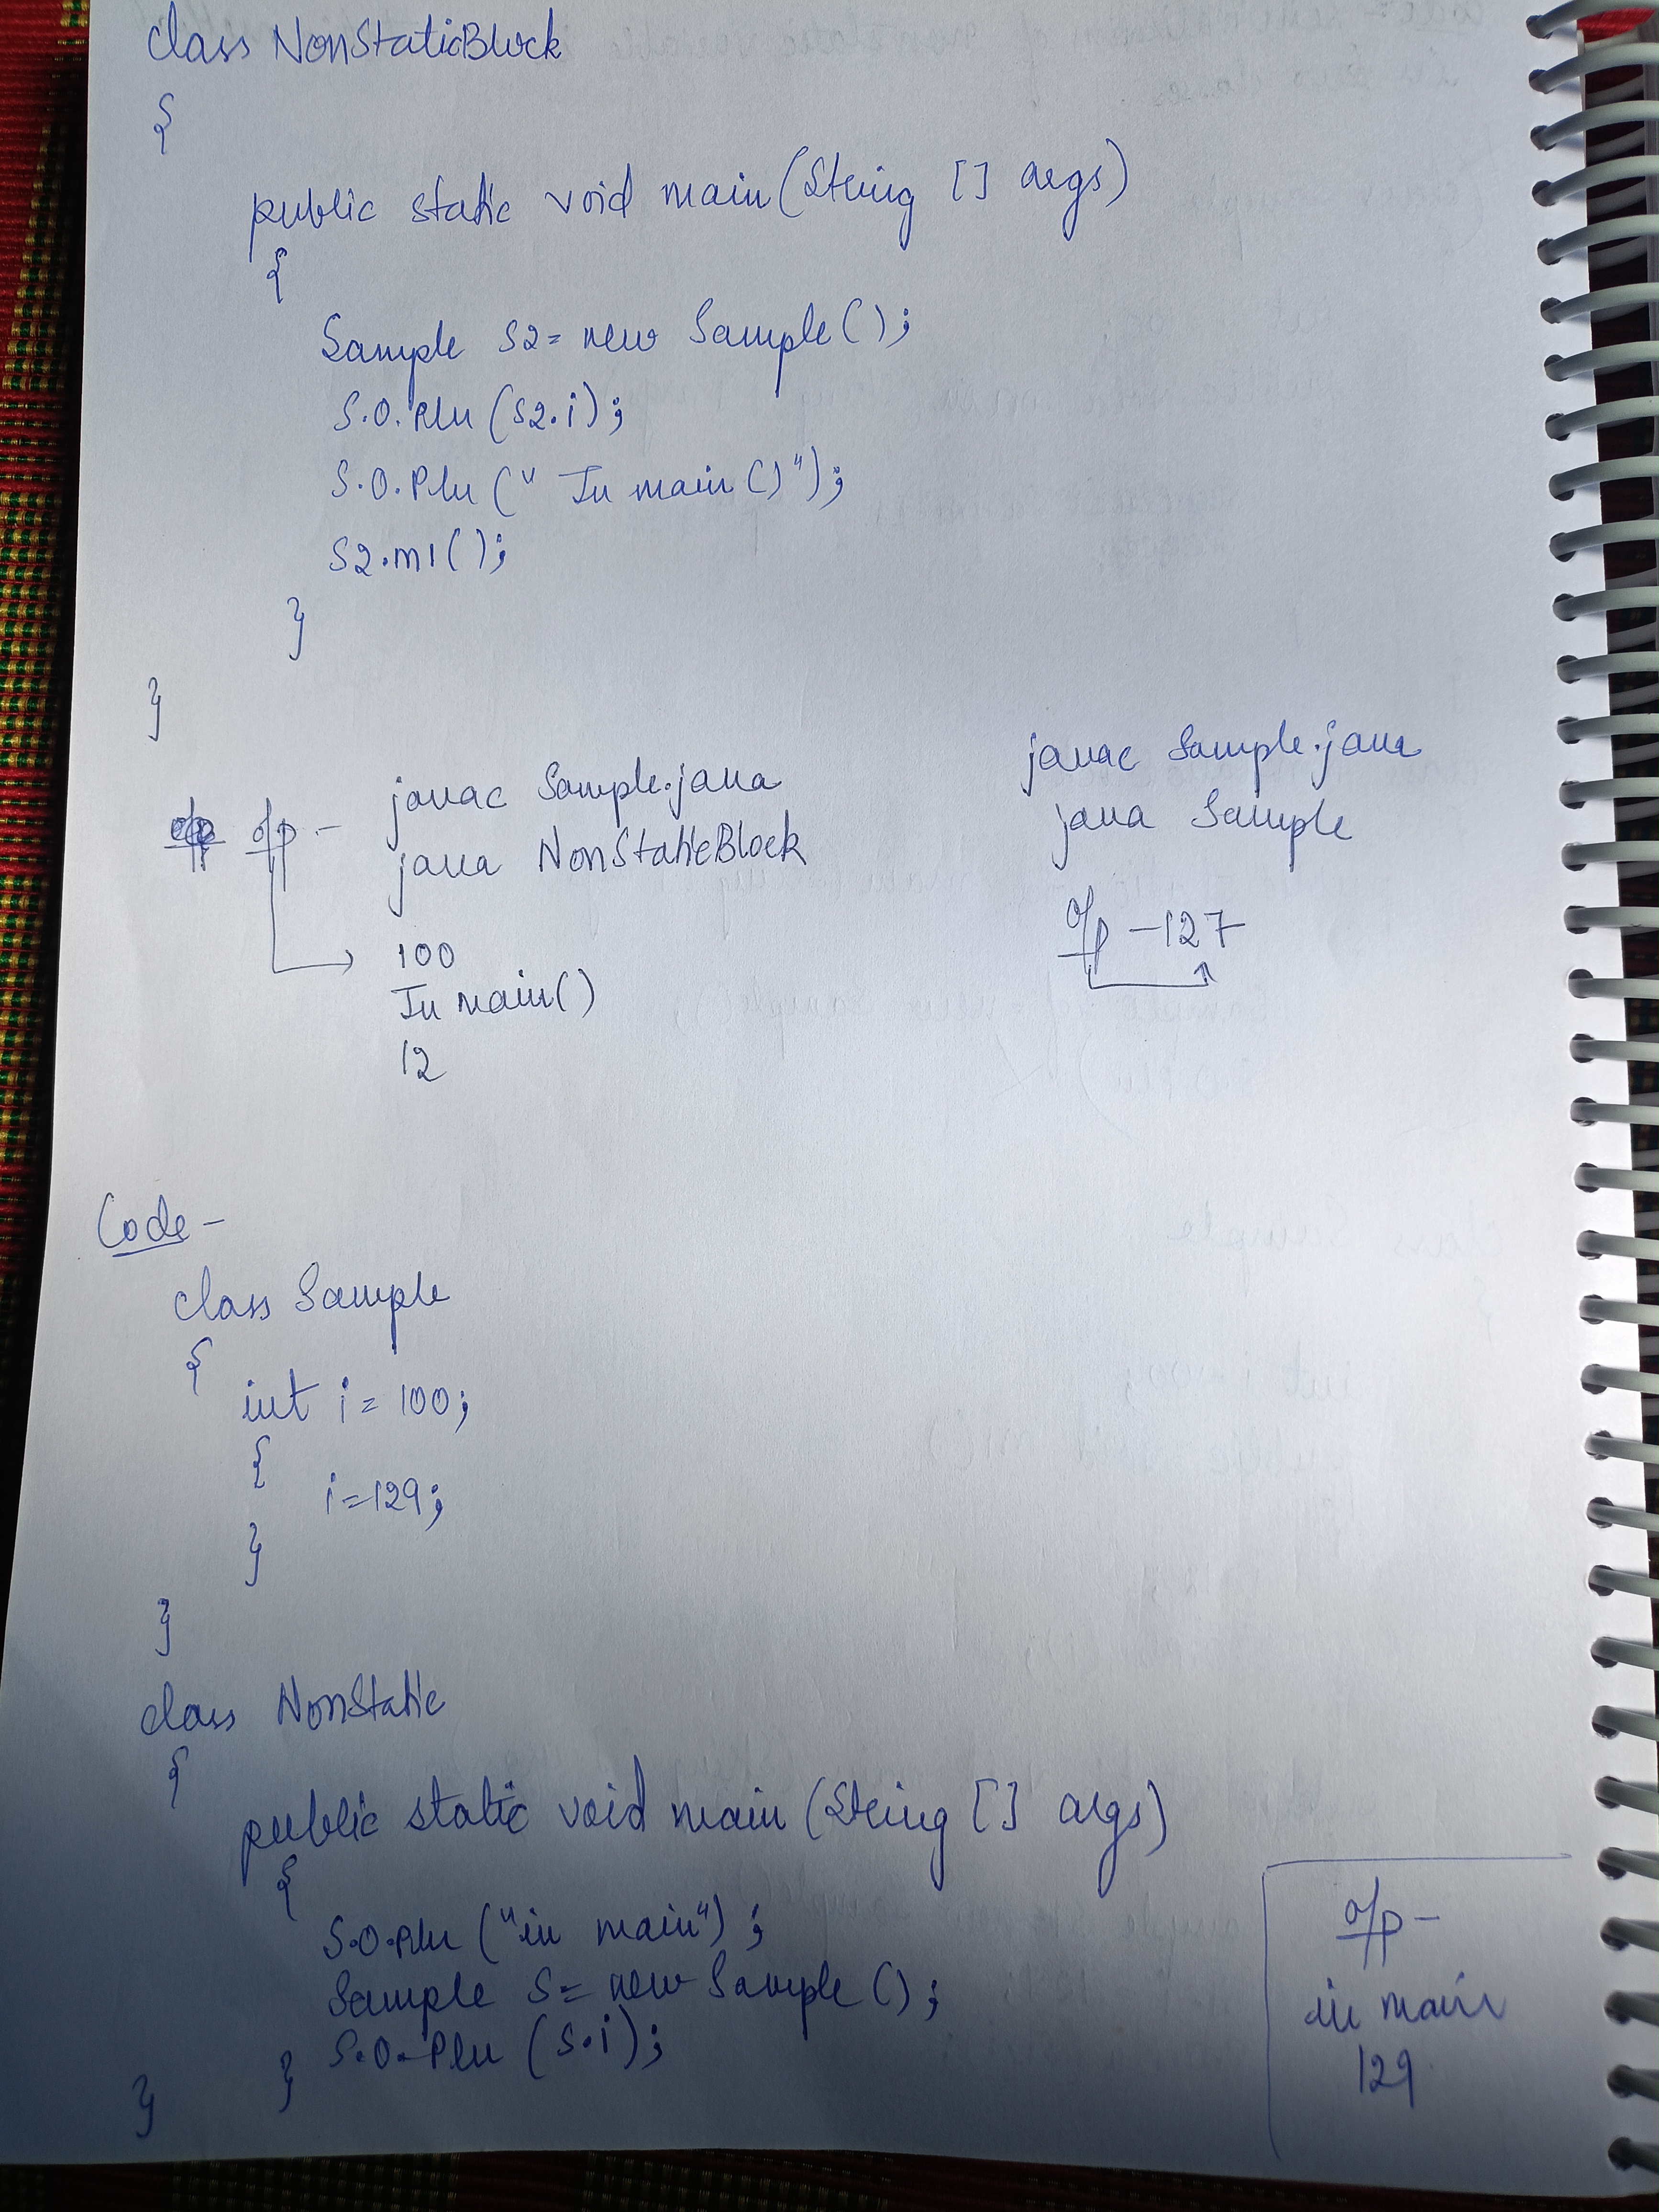 class NonStaticBlock
{
public static void main(String [] args)
{
Sample s2 = new Sample();
S.O.Pln (s2.i);
S.O.Pln (" In main()");
s2.m1();
}
}
o/p :-
javac Sample.java
java NonStaticBlock
100
In main()
12
javac Sample.java
java Sample
o/p - 127
Code -
class Sample
{
int i = 100;
{
i=129;
}
}
class NonStatic
{
public static void main (String [] args)
{
S.O.Pln ("in main");
Sample s = new Sample();
S.O.Pln (s.i);
}
}
o/p -
in main
129